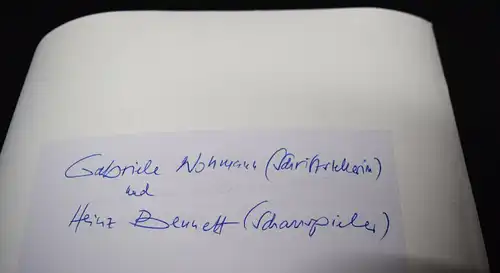 Gabriele Wohmann (Schriftstellerin)
und
Heinz Bennett (Schauspieler)